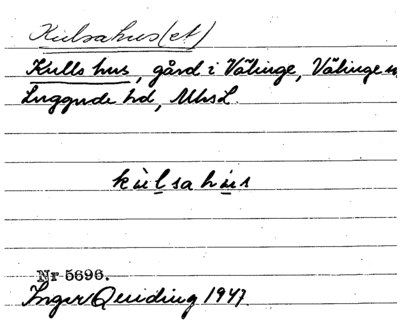 Kulsahus(et)
Kulls hus, gård i Välinge, Välinge
Luggude hd, MhsL.
kùlsahùs
Nr 5696.
Inger Quiding 1947.